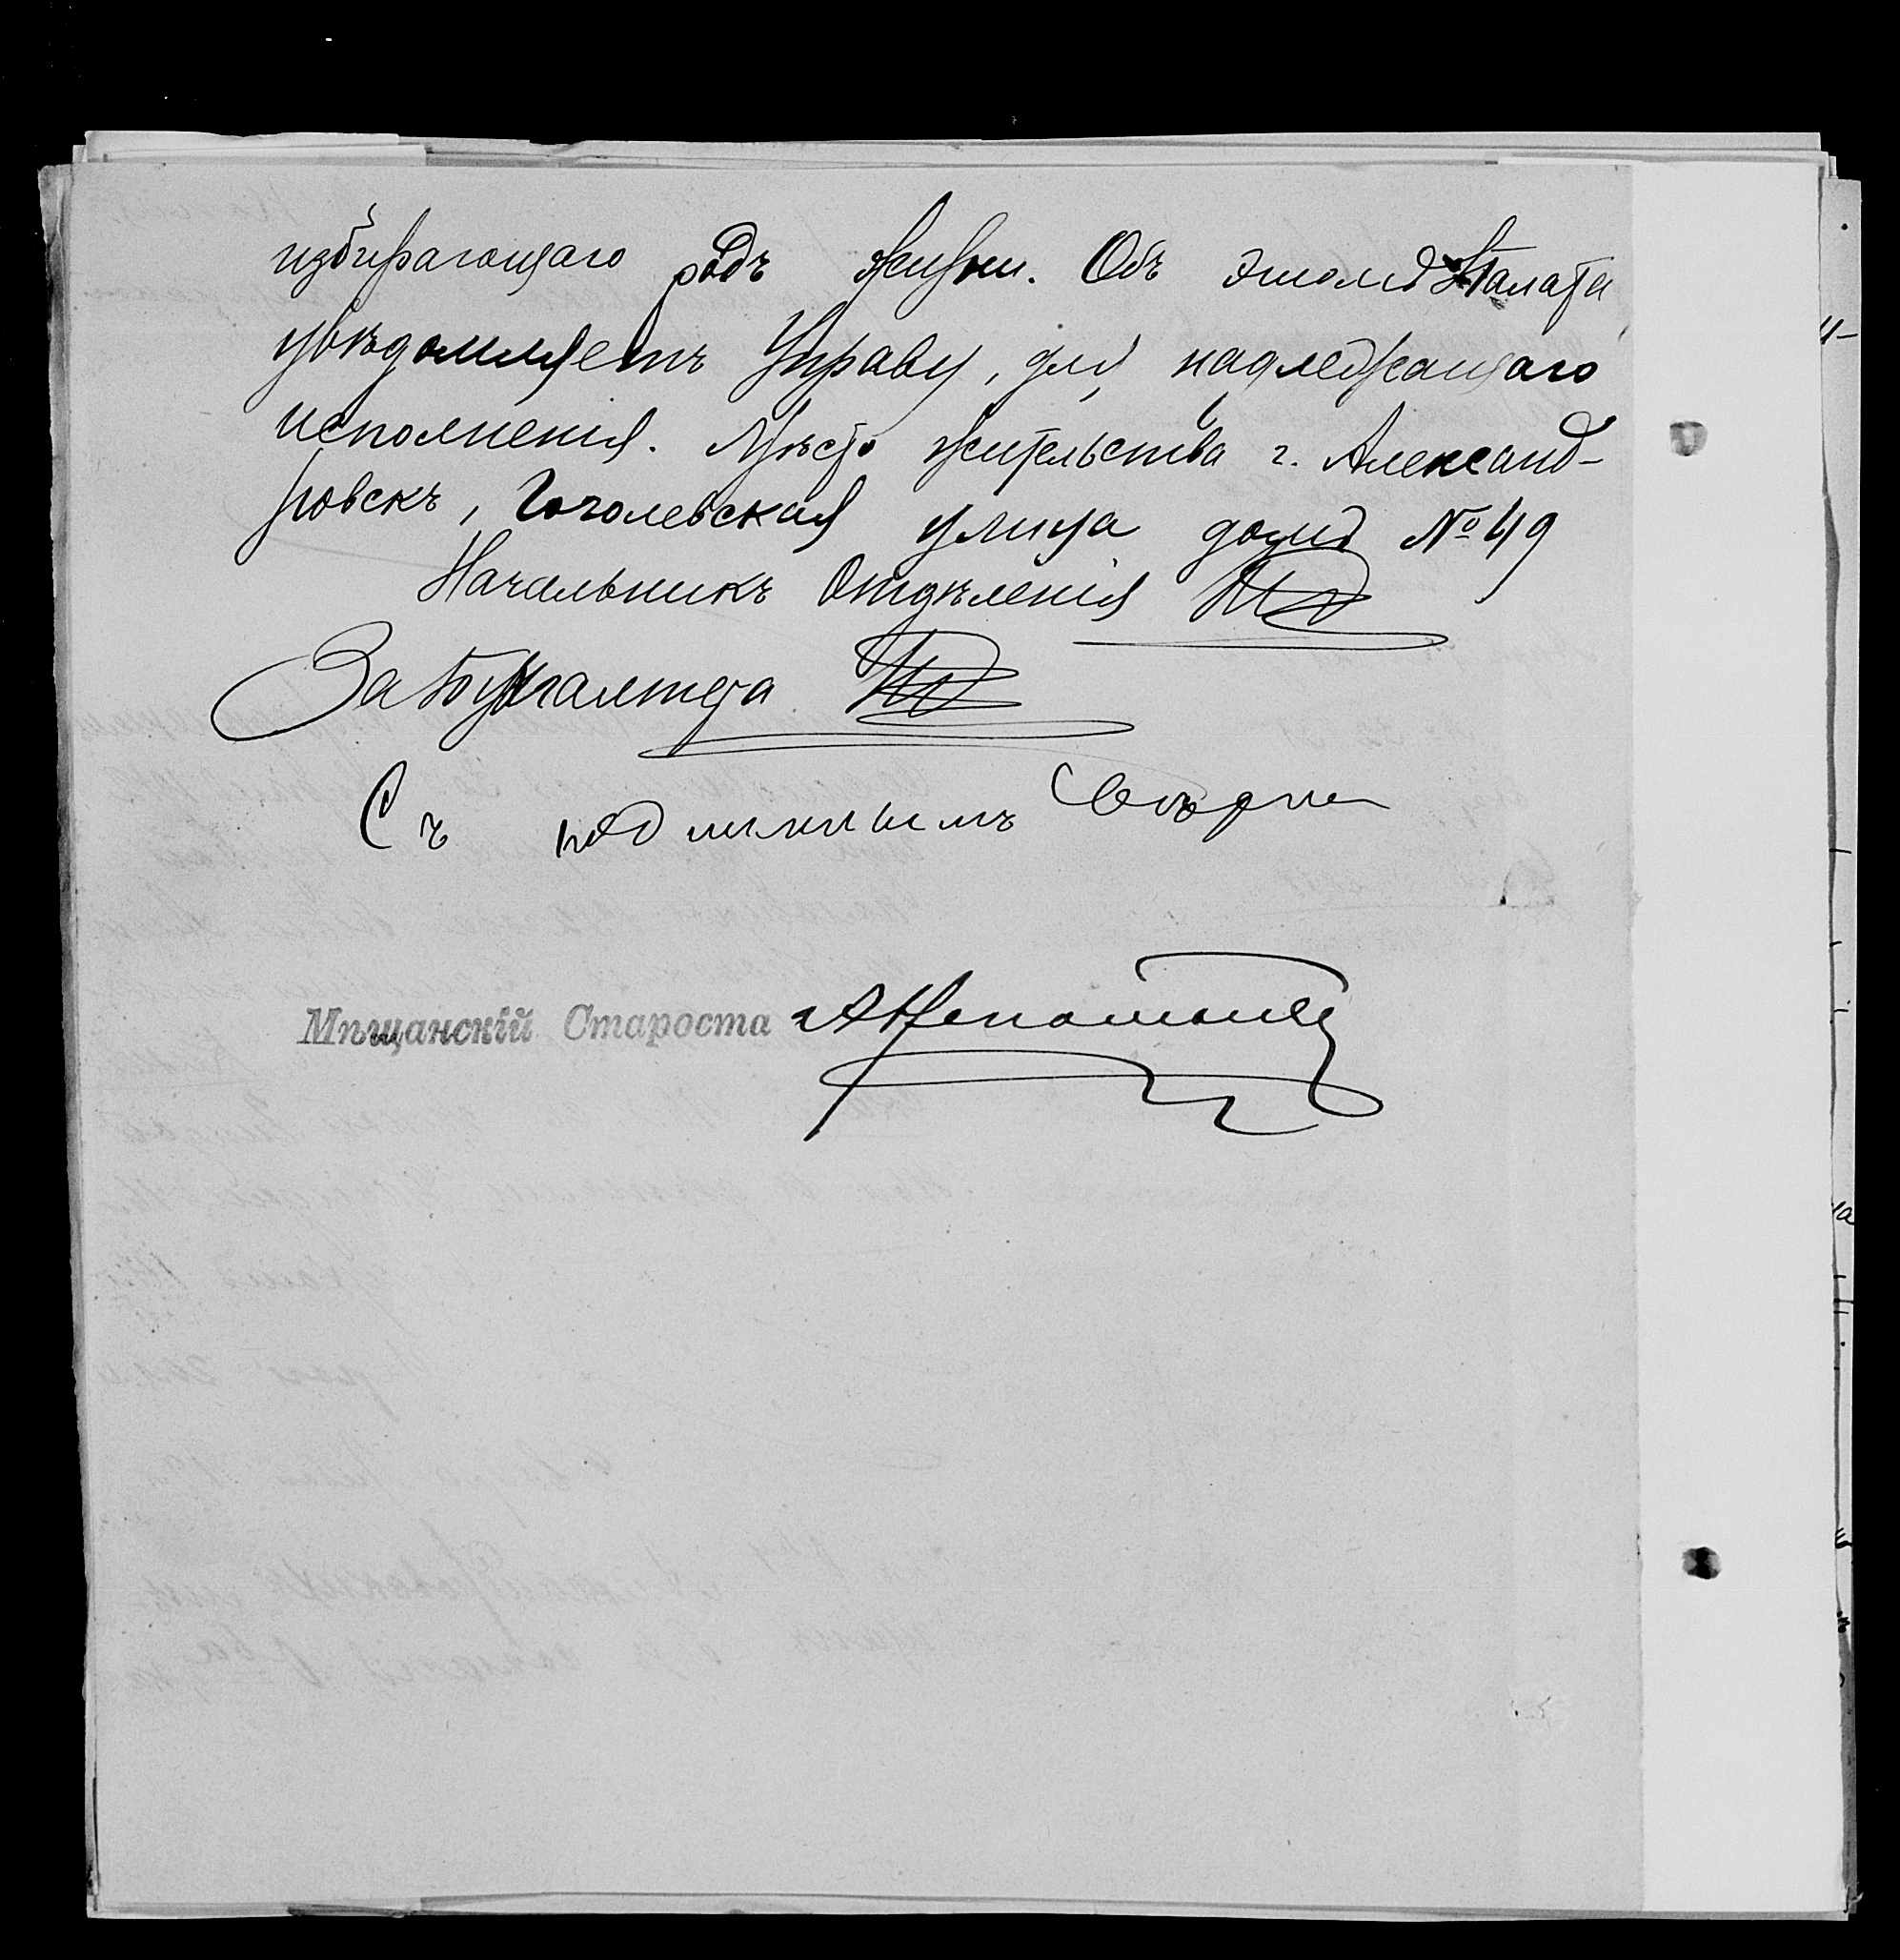 избирающаго родъ жизни. Объ этомъ Палата
увѣдомляетъ Управу, для надлежащаго
исполненія. Мѣсто жительства г. Александ-
ровскъ, Гоголевская улица домъ № 49
Начальникъ Отдѣленія
За Бухгалтера
Съ подлиннымъ вѣрно
Мѣщанскій Староста